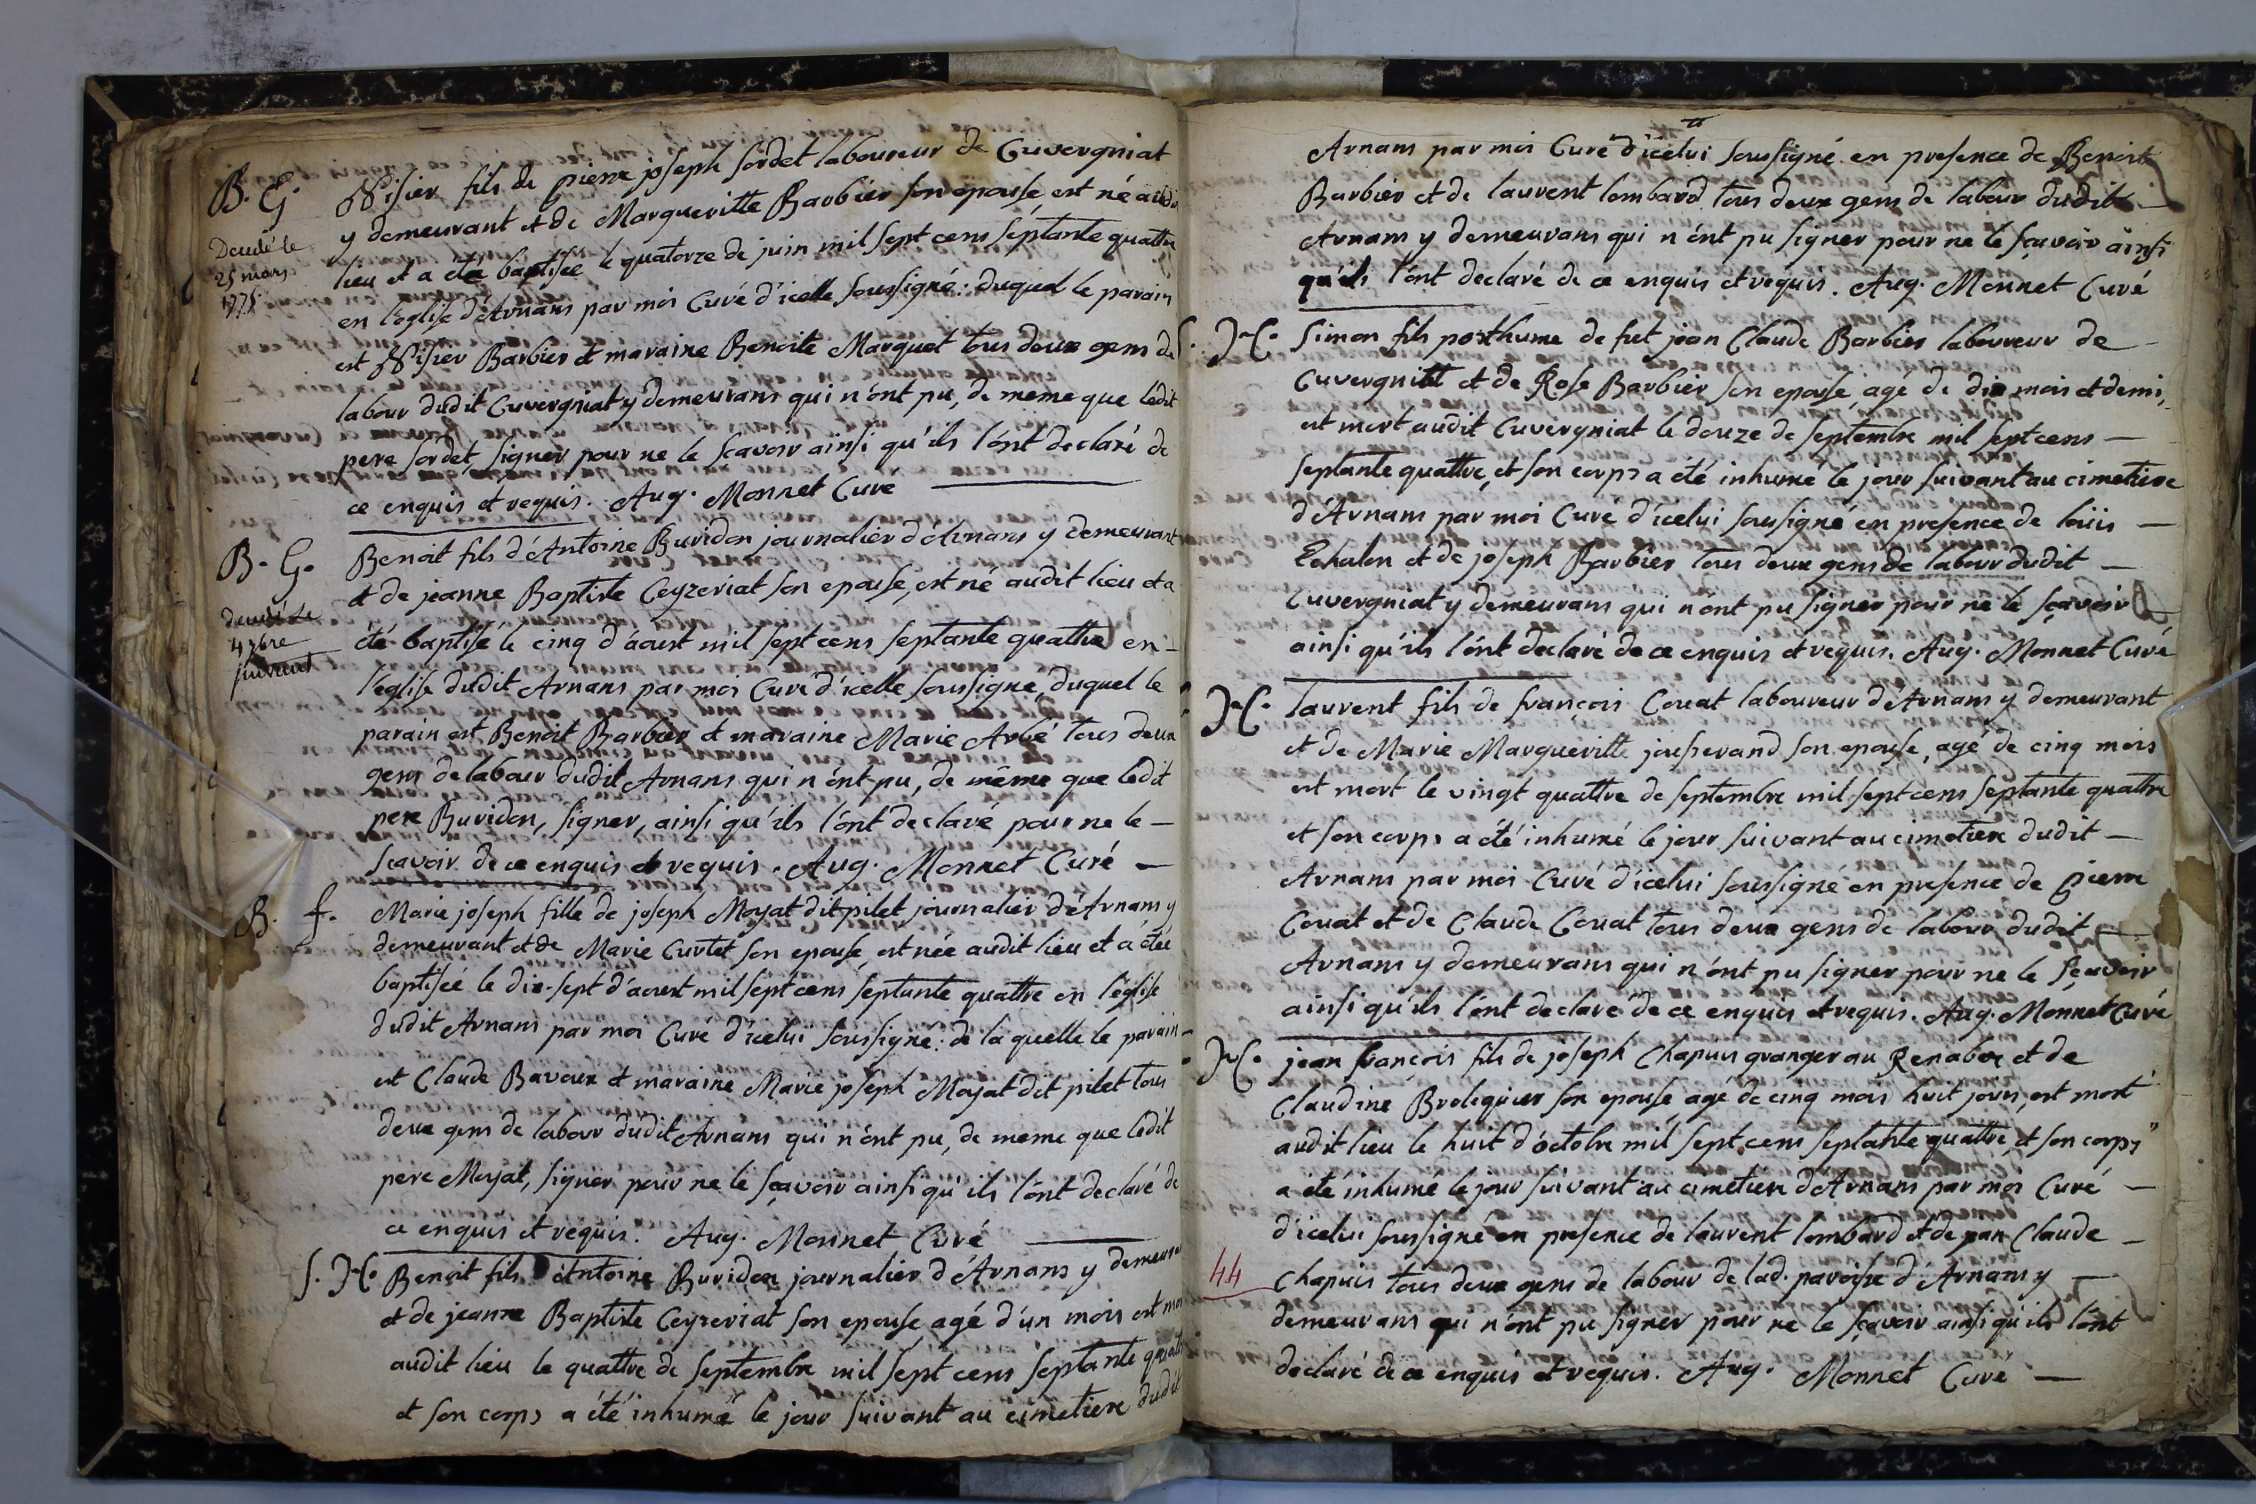 B. G. Nisier fils de pierre joseph sordet laboureur de Cuvergniat
y demeurant et de Margueritte Barbier son epouse, est né audit
Decedé le
25 mars
1775.
lieu et a été baptisée le quatorze de juin mil sept cens séptante quattre
en l'église d'Arnans par moi Curé d'icelle soussigné: duquel le parain
est Nisier Barbier et maraine Benoite Marquet tous deux gens de
labour dudit Cuvergniat y demeurans qui n'ónt pu, de meme que ledit
pere sordet, signer pour ne le scavoir ainsi qu'ils l'ónt declaré de
ce enquis et requis. Aug. Monnet Curé
B. G. Benoit fils d'Antoine Buridon journalier d'Arnans y demeurant
et de jeanne Baptiste Ceyzeriat son epouse, est né audit lieu et a
decedé le
4 7bre
suivant
été baptisé le cinq d'aoust mil sept cens septante quattre en
l'église dudit Arnans par moi Curé d'icelle soussigné, duquel le
parain est Benoit Barbier et maraine Marie Arbé tous deux
gens de labour dudit Arnans qui n'ónt pu, de même que ledit
pere Buridon, signer, ainsi qu'ils l'ónt declaré pour ne le
scavoir de ce enquis et requis. Aug. Monnet Curé
B. f. Marie joseph fille de joseph Moyat dit pilet journalier d'Arnans y
demeurant et de Marie Curtet son epouse, est née audit lieu et a étée
baptisée le dix-sept d'aoust mil sept cens septante quattre en l'église
dudit Arnans par moi Curé d'icelui soussigné: de laquelle le parain
est Claude Bavoux et maraine Marie joseph Moyat dit pilet tous
deux gens de labour dudit Arnans qui n'ónt pu, de meme que ledit
pere Moyat, signer pour ne le sçavoir ainsi qu'ils l'ónt declaré de
ce enquis et requis. Aug. Monnet Curé
S. M. Benoit fils d'Antoine Buridon journalier d'Arnans y demeurant
et de jeanne Baptiste Ceyzeriat son epouse agé d'un mois est mort
audit lieu le quattre de septembre mil sept cens septante quattre
et son corps a été inhumé le jour suivant au cimetiere dudit
Arnans par moi Curé d'icelui soussigné en presence de Benoit
Barbier et de laurent lombard tous deux gens de labour dudit
Arnans y demeurans qui n'ónt pu signer pour ne le sçavoir ainsi
qu'ils l'ónt declaré de ce enquis et requis. Aug. Monnet Curé
S. M. Simon fils posthume de fut jean Claude Barbier laboureur de
Cuvergniat et de Rose Barbier son epouse agé de dix mois et demi,
est mort audit Cuvergniat le douze de septembre mil sept cens
septante quattre, et son corps a été inhumé le jour suivant au cimetiere
d'Arnans par moi Curé d'icelui soussigné en presence de loüis
Echalon et de joseph Barbier tous deux gens de labour dudit
Cuvergniat y demeurans qui n'ónt pu signer pour ne le sçavoir
ainsi qu'ils l'ónt declaré de ce enquis et requis. Aug. Monnet Curé
M. laurent fils de françois Couat laboureur d'Arnans y demeurant
et de Marie Margueritte jousserand son epouse, agé de cinq mois
est mort le vingt quattre de septembre mil sept cens septante quattre
et son corps a été inhumé le jour suivant au cimetiere dudit
Arnans par moi Curé d'icelui soussigné en presence de pierre
Couat et de Claude Couat tous deux gens de labour dudit
Arnans y demeurans qui n'ónt pu signer pour ne le sçavoir
ainsi qu'ils l'ónt declaré de ce enquis et requis. Aug. Monnet Curé
M. jean françois fils de joseph Chapuis granger au Renabou et de
Claudine Broliquier son epouse agé de cinq mois huit jours, est mort
audit lieu le huit d'octobre mil sept cens septante quattre, et son corps
a été inhumé le jour suivant au cimetiere d'Arnans par moi Curé
d'icelui soussigné en presence de laurent lombard et de jean Claude
44 Chapuis tous deux gens de labour de lad. paroisse d'Arnans y
demeurans qui n'ónt pu signer pour ne le sçavoir ainsi qu'ils l'ónt
declaré de ce enquis et requis. Aug. Monnet Curé